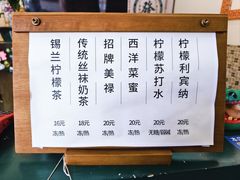 柠檬利宾纳
20元
冻/热
柠檬苏打水
20元
无糖/弱碱
西洋菜蜜
20元
冻/热
招牌美禄
20元
冻/热
传统丝袜奶茶
18元
冻/热
锡兰柠檬茶
16元
冻/热